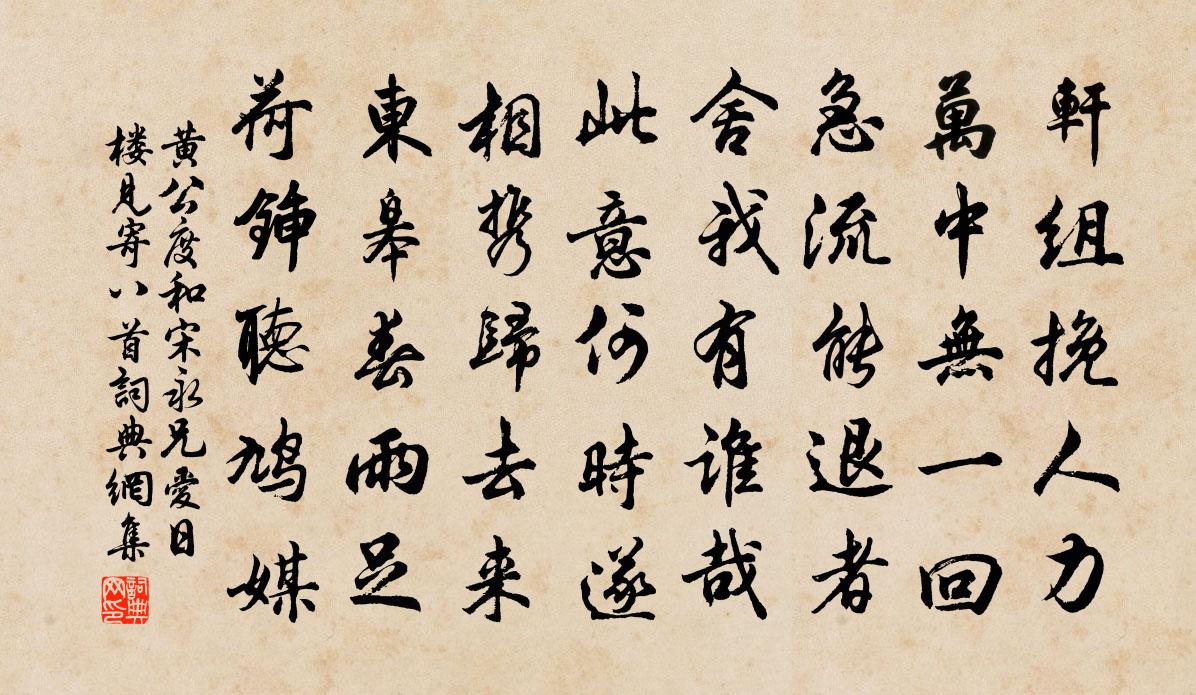 軒組挽人力
萬中無一回
急流能退者
舍我有谁哉
此意何時遂
相携歸去来
東皋春雨足
荷鍤聽鳩媒
黄公度和宋永兄爱日
楼見寄八首詞典網集
詞典
网印